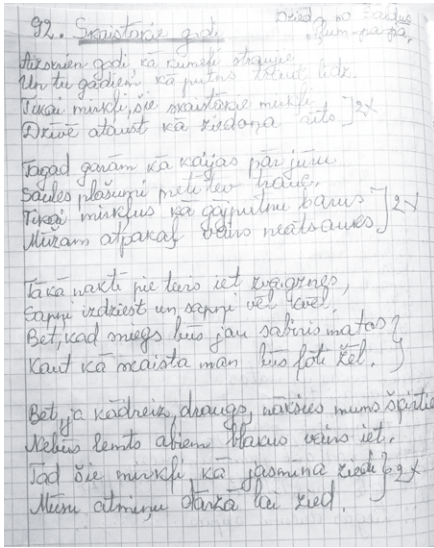 92. Skaistākie gadi
Dzied no
"Zum-pa-pa"
Aizskrien gadi kā kumeļi straujie
Un tu gadiem kā putns līdz.
Tikai mirkļi, šie skaistākie mirkļi
Dzīvē ataust kā ziedoņa rīts ]2x
Tagad garām kā kaijas pār jūru
Saules plašumi pretī tev trauc,
Tikai mirkļus kā gājputnu barus ]2x
Mūžam atpakaļ vairs neatsauks
Tākā naktī pie teris iet zvaigznes,
Sapņi izdziest un sapņi vēl kvēl.
Bet, kad sniegs būs jau sabiris matos
Kaut kā skaista man būs ļoti žēl.
Bet ja kādreiz, draugs, nāksies mums šķirties
Nebūs lemts abiem blakus vairs iet.
Tad šie mirkļi kā jasmīna ziedi }2x
Mūsu atmiņu dārzā lai zied.